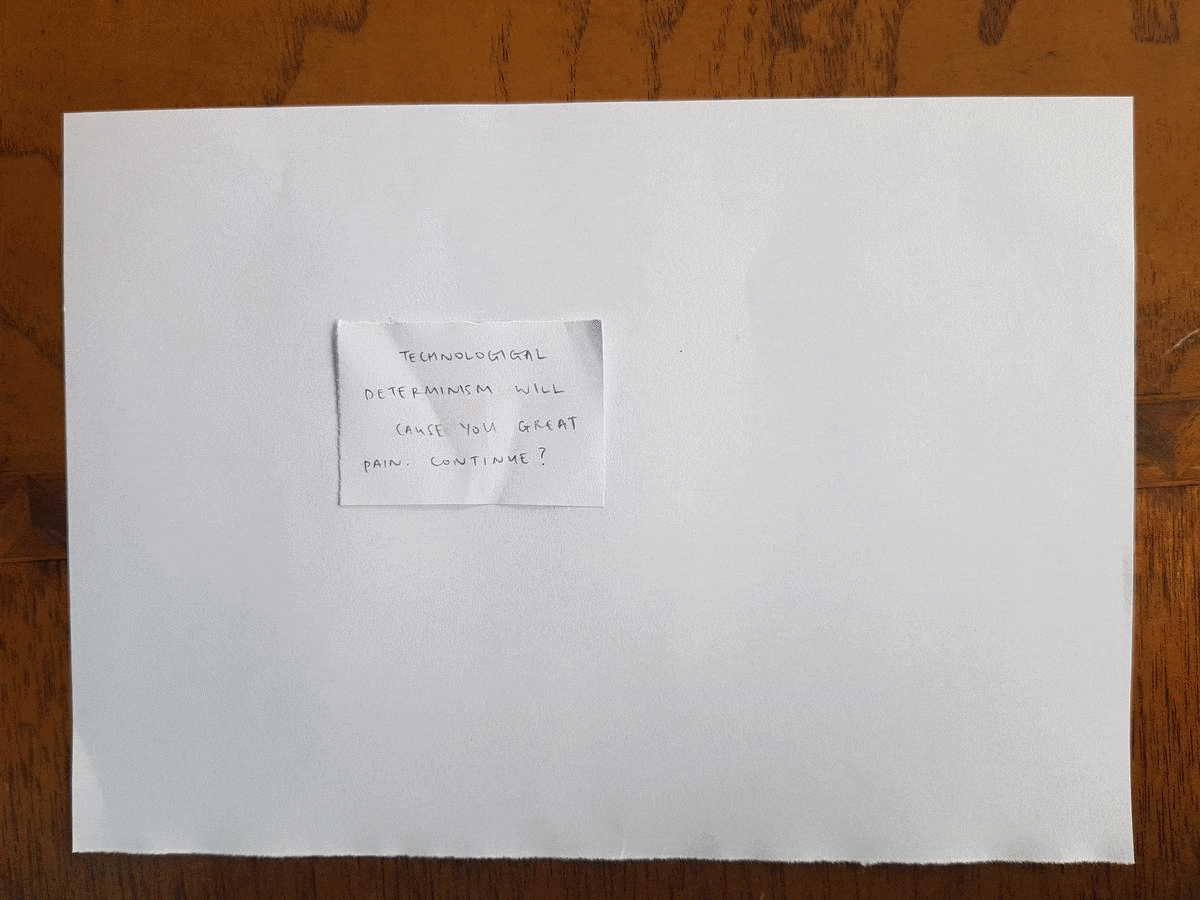 TECHNOLOGIGAL
DETERMINISM WILL
CAUSE YOU GREAT
PAIN. CONTINUE?